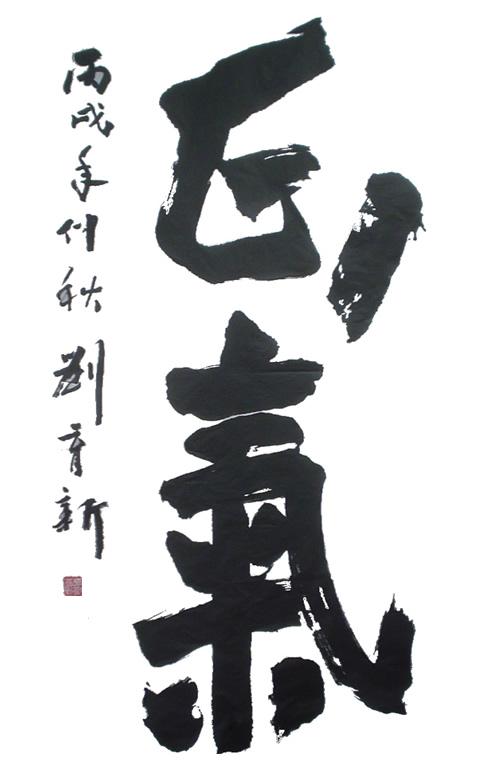 正氣
丙戌年仲秋劉育新